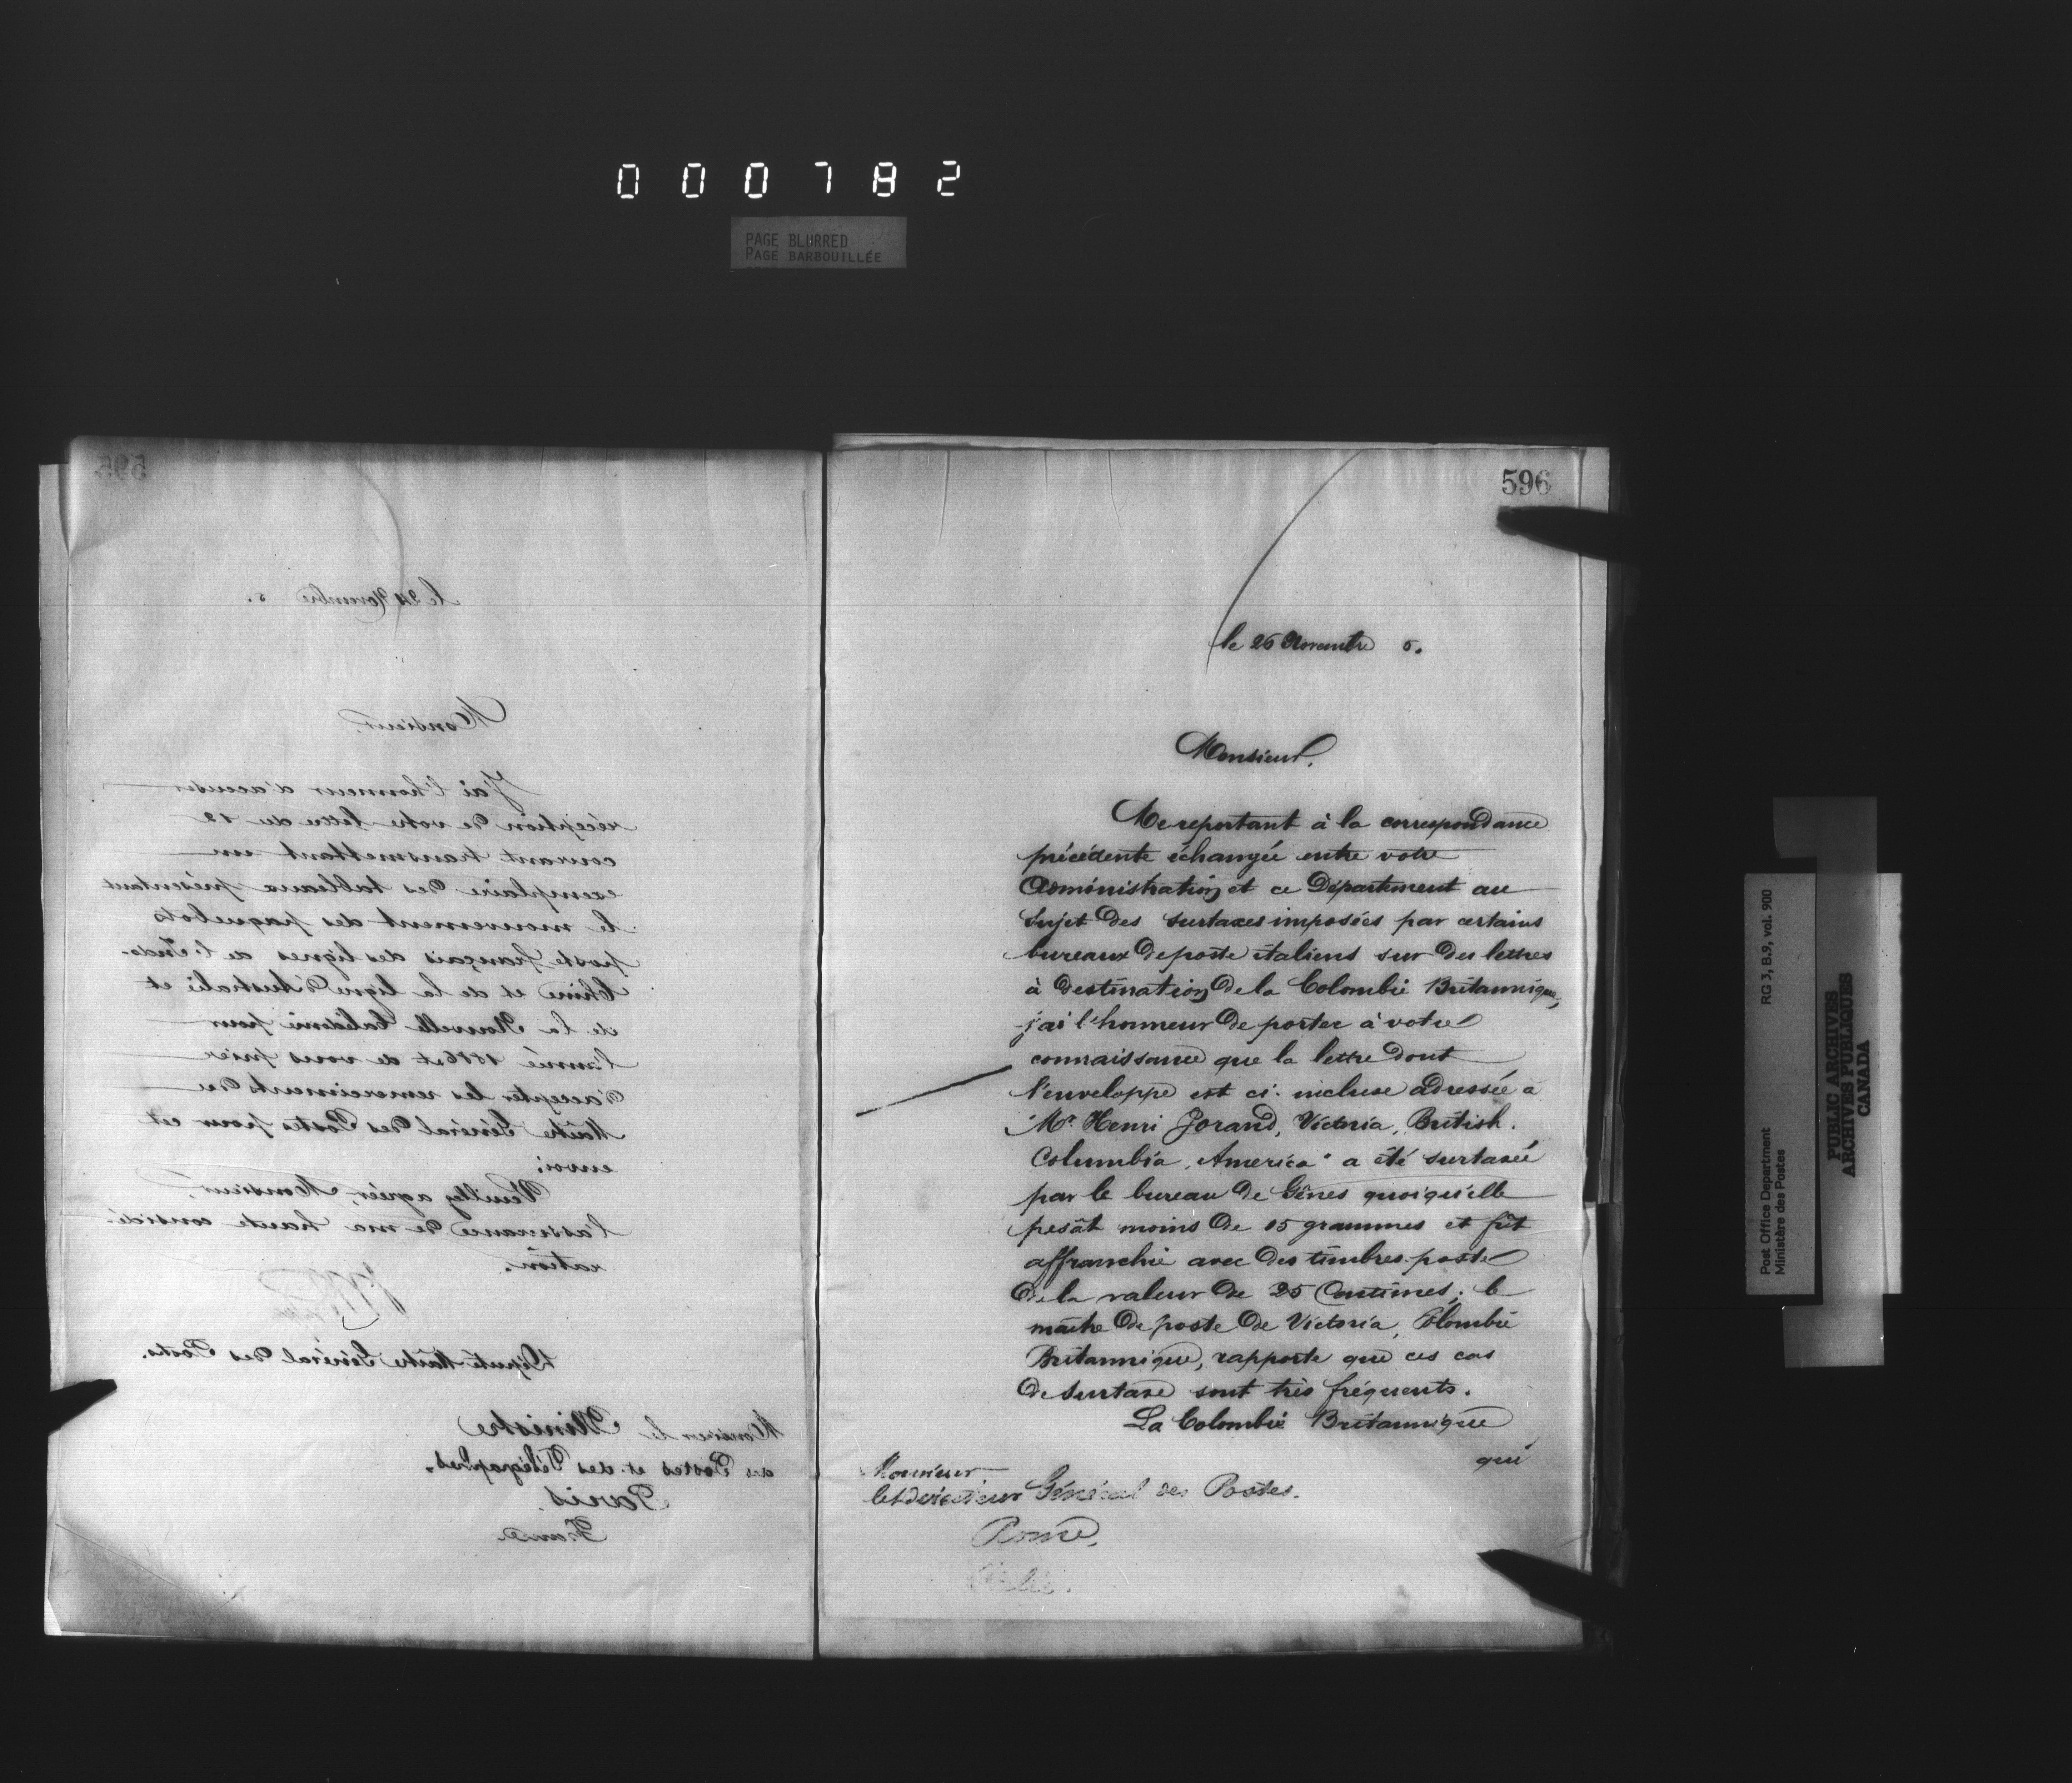 000782
PAGE BLURRED
PAGE BARBOUILLÉE
595
le 24 Novembre 5.
Monsieur,
J'ai l'honneur d'accuser
réception de votre lettre du 12
courant transmettant un
exemplaire des tableaux présentant
le mouvement des paquebots
poste français des lignes de l'Indo-
Chine et de la ligne d'Australie et
de la Nouvelle Calédonie pour
l'année 1886 et de vous prier
d'accepter les remerciments du
Maître Général des Postes pour cet
envoi;
Veuillez agréer, Monsieur,
l'assurance de ma haute considé-
ration.
Député Maître Général des Postes.
Monsieur le Ministre
des Postes et des Télégraphes.
Paris.
France
596
le 26 Novembre 5.
Monsieur,
Me reportant à la correspondance
précédente échangée entre votre
Administration et ce Département au
Sujet des surtaxes imposées par certains
bureaux de poste italiens sur des lettres
à destination de la Colombie Britannique,
j'ai l'honneur de porter à votre
connaissance que la lettre dont
l'enveloppe est ci-incluse adressée à
"Mr. Henri Jorand, Victoria, British
Columbia, America" a été surtaxée
par le bureau de Gênes quoiqu'elle
pesât moins de 15 grammes et fût
affranchie avec des timbres-poste
de la valeur de 25 Centimes; le
maître de poste de Victoria, Colombie
Britannique, rapporte que ces cas
de surtaxe sont très fréquents.
La Colombie Britannique
qui
Monsieur
le Directeur Général des Postes.
Rome,
Italie.
Post Office Department RG 3, B.9, vol. 900
Ministère des Postes
PUBLIC ARCHIVES
ARCHIVES PUBLIQUES
CANADA